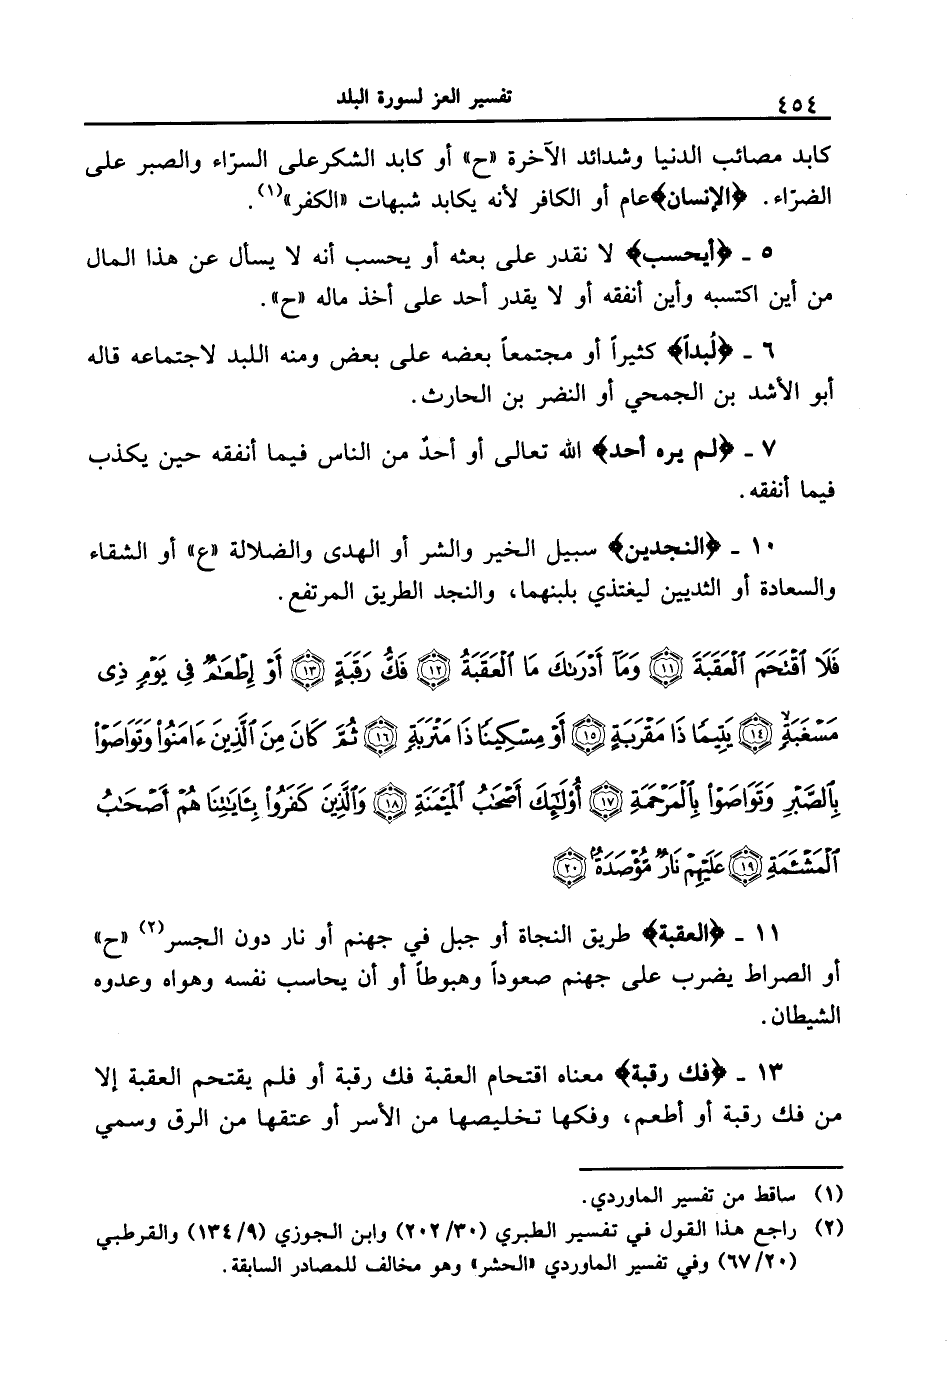 ٤٥٤ تفسير العز لسورة البلد
كابد مصائب الدنيا وشدائد الآخرة «ح» أو كابد الشكرعلى السرّاء والصبر على
الضرّاء. ﴿الإنسان﴾عام أو الكافر لأنه يكابد شبهات «الكفر»(١).
٥ - ﴿أيحسب﴾ لا نقدر على بعثه أو يحسب أنه لا يسأل عن هذا المال
من أين اكتسبه وأين أنفقه أو لا يقدر أحد على أخذ ماله «ح».
٦ - ﴿لُبداً﴾ كثيراً أو مجتمعاً بعضه على بعض ومنه اللبد لاجتماعه قاله
أبو الأشد بن الجمحي أو النضر بن الحارث.
٧ - ﴿لم يره أحد﴾ الله تعالى أو أحدٌ من الناس فيما أنفقه حين يكذب
فيما أنفقه.
١٠ - ﴿النجدين﴾ سبيل الخير والشر أو الهدى والضلالة «ع» أو الشقاء
والسعادة أو الثديين ليغتذي بلبنهما، والنجد الطريق المرتفع.
فَلَا ٱقْتَحَمَ ٱلْعَقَبَةَ ۝١١ وَمَآ أَدْرَىٰكَ مَا ٱلْعَقَبَةُ ۝١٢ فَكُّ رَقَبَةٍ ۝١٣ أَوْ إِطْعَٰمٌ فِى يَوْمٍ ذِى
مَسْغَبَةٍ ۝١٤ يَتِيمًا ذَا مَقْرَبَةٍ ۝١٥ أَوْ مِسْكِينًا ذَا مَتْرَبَةٍ ۝١٦ ثُمَّ كَانَ مِنَ ٱلَّذِينَ ءَامَنُوا۟ وَتَوَاصَوْا۟
بِٱلصَّبْرِ وَتَوَاصَوْا۟ بِٱلْمَرْحَمَةِ ۝١٧ أُو۟لَٰٓئِكَ أَصْحَٰبُ ٱلْمَيْمَنَةِ ۝١٨ وَٱلَّذِينَ كَفَرُوا۟ بِـَٔايَٰتِنَا هُمْ أَصْحَٰبُ
ٱلْمَشْـَٔمَةِ ۝١٩ عَلَيْهِمْ نَارٌ مُّؤْصَدَةٌۢ ۝٢٠
١١ - ﴿العقبة﴾ طريق النجاة أو جبل في جهنم أو نار دون الجسر(٢) «ح»
أو الصراط يضرب على جهنم صعوداً وهبوطاً أو أن يحاسب نفسه وهواه وعدوه
الشيطان.
١٣ - ﴿فك رقبة﴾ معناه اقتحام العقبة فك رقبة أو فلم يقتحم العقبة إلا
من فك رقبة أو أطعم، وفكها تخليصها من الأسر أو عتقها من الرق وسمي
(١) ساقط من تفسير الماوردي.
(٢) راجع هذا القول في تفسير الطبري (٢٠٢/٣٠) وابن الجوزي (١٣٤/٩) والقرطبي
(٦٧/٢٠) وفي تفسير الماوردي «الحشر» وهو مخالف للمصادر السابقة.